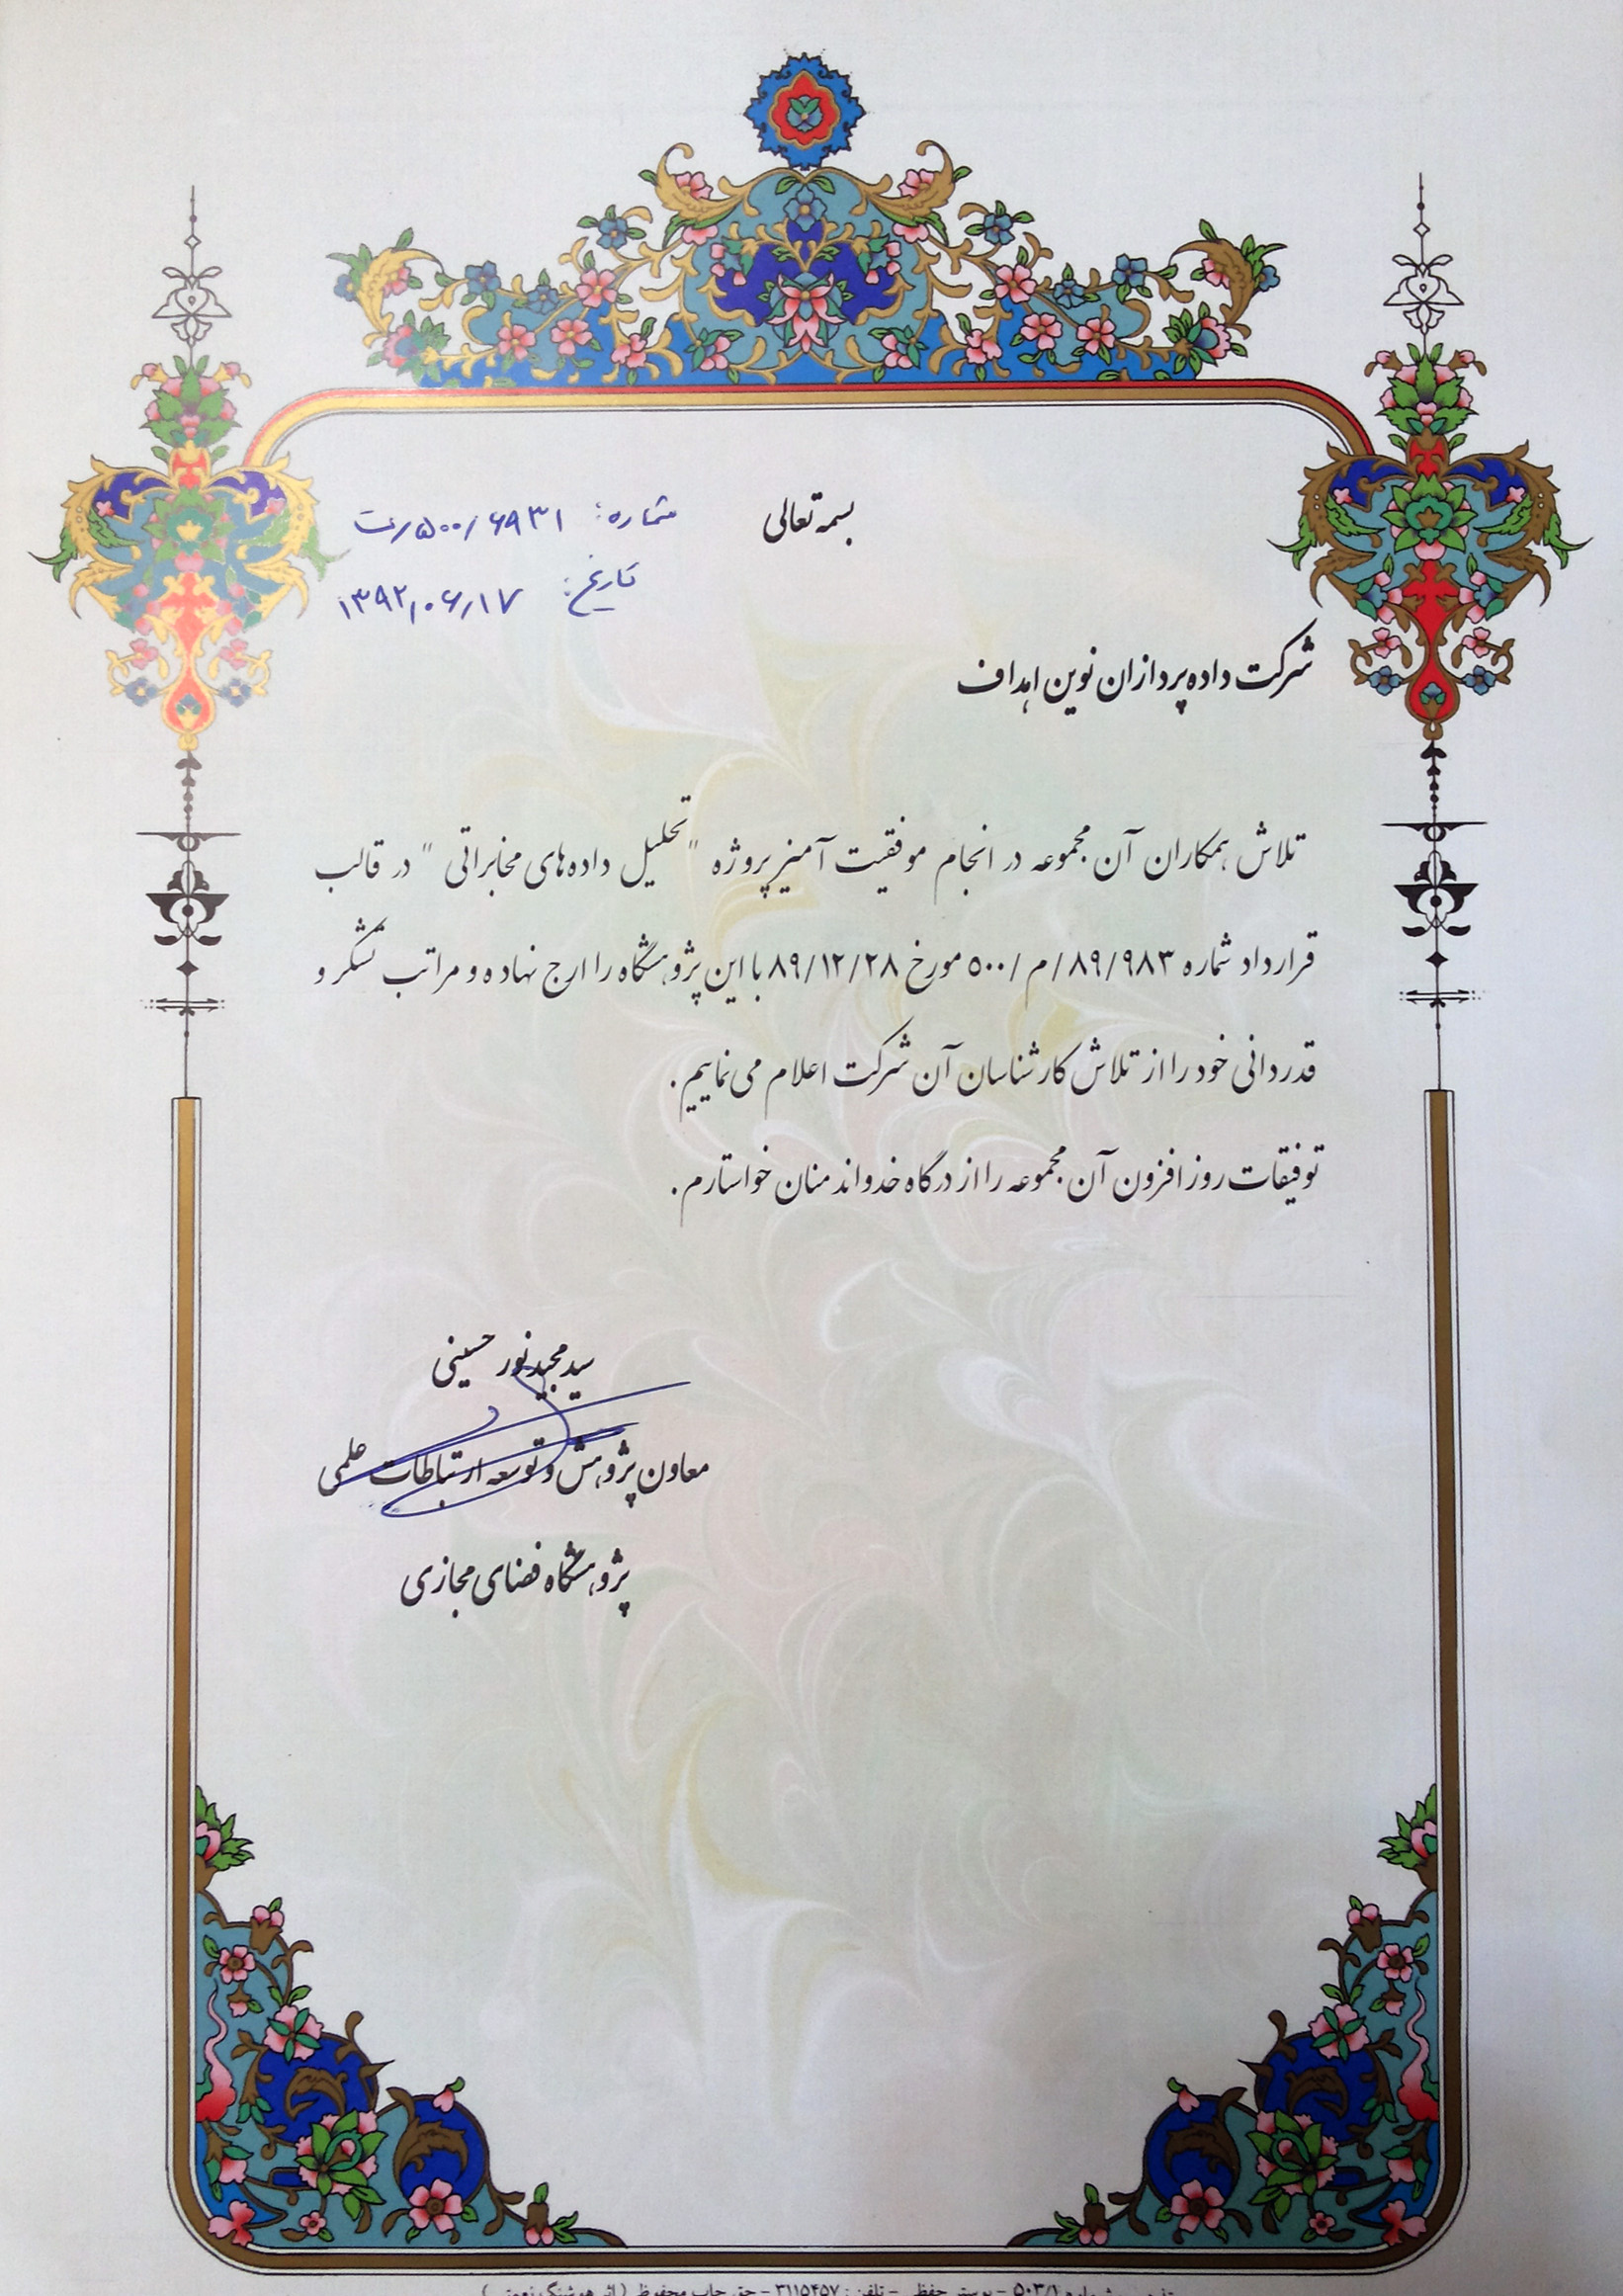 بسمه تعالی
شماره: ۵۰۰/۶۹۳۱/ت
تاریخ: ۱۳۹۲/۰۶/۱۷
شرکت داده پردازان نوین اهداف
تلاش همکاران آن مجموعه در انجام موفقیت آمیز پروژه "تحلیل داده‌های مخابراتی" در قالب
قرارداد شماره ۵۰۰/م/۸۹/۹۸۳ مورخ ۸۹/۱۲/۲۸ با این پژوهشگاه را ارج نهاده و مراتب تشکر و
قدردانی خود را از تلاش کارشناسان آن شرکت اعلام می‌نماییم.
توفیقات روز افزون آن مجموعه را از درگاه خداوند منان خواستارم.
سید مجید نور حسینی
معاون پژوهش و توسعه ارتباطات علمی
پژوهشگاه فضای مجازی
۵۰۳/۱ - پوستر حفظی - تلفن: ۳۱۱۵۴۵۷ - حق چاپ محفوظ (اثر هوشنگ نعمتی)